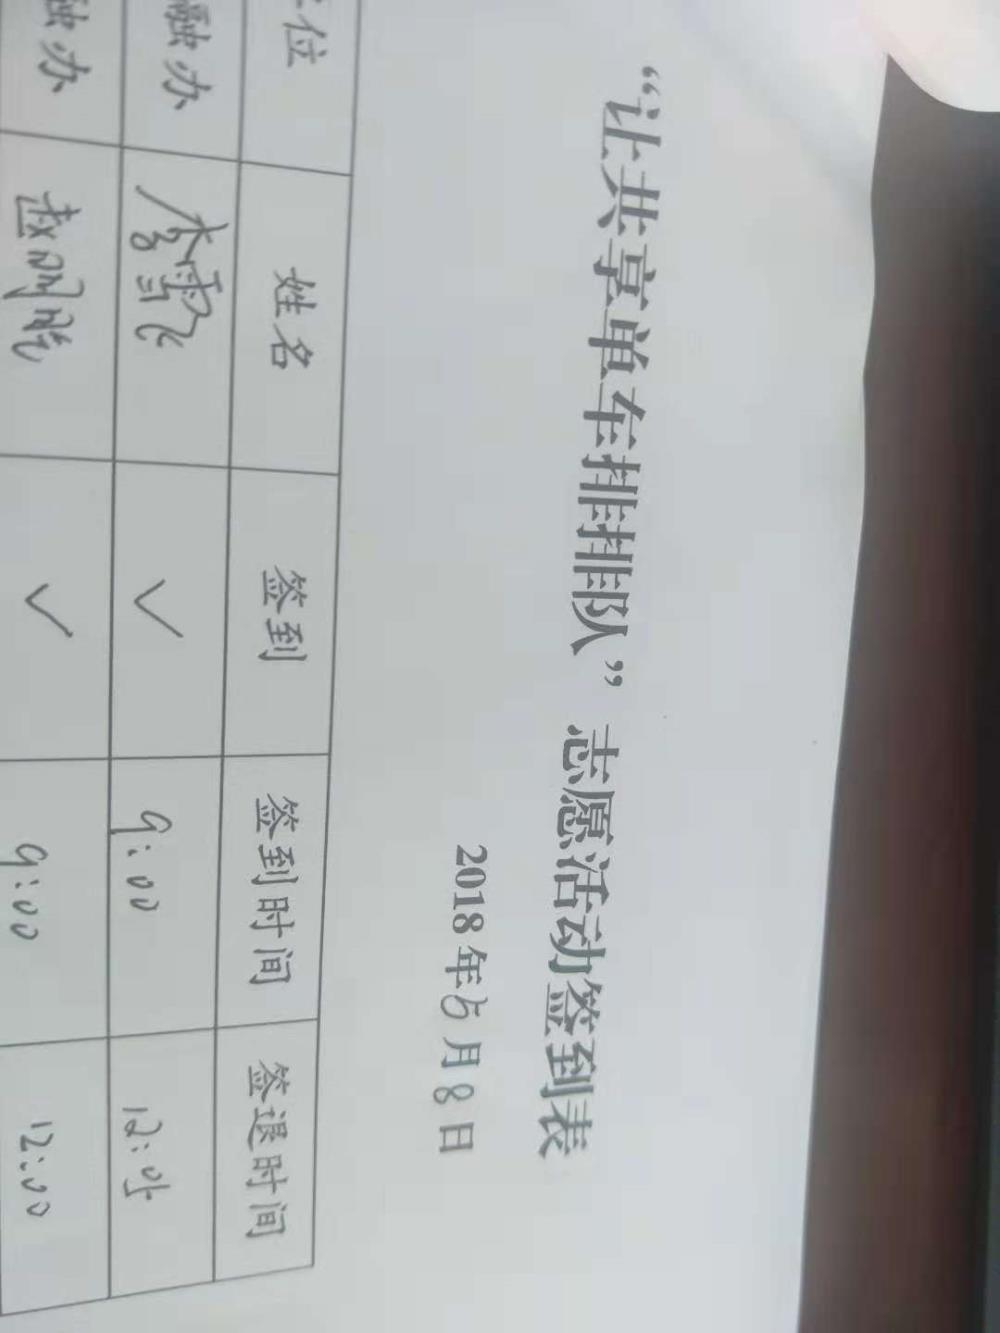 “让共享单车排排队”志愿活动签到表
2018年5月8日
位 姓名 签到 签到时间 签退时间
融办 李雪飞 ✓ 9:00 12:00
融办 赵丽胜 ✓ 9:00 12:00